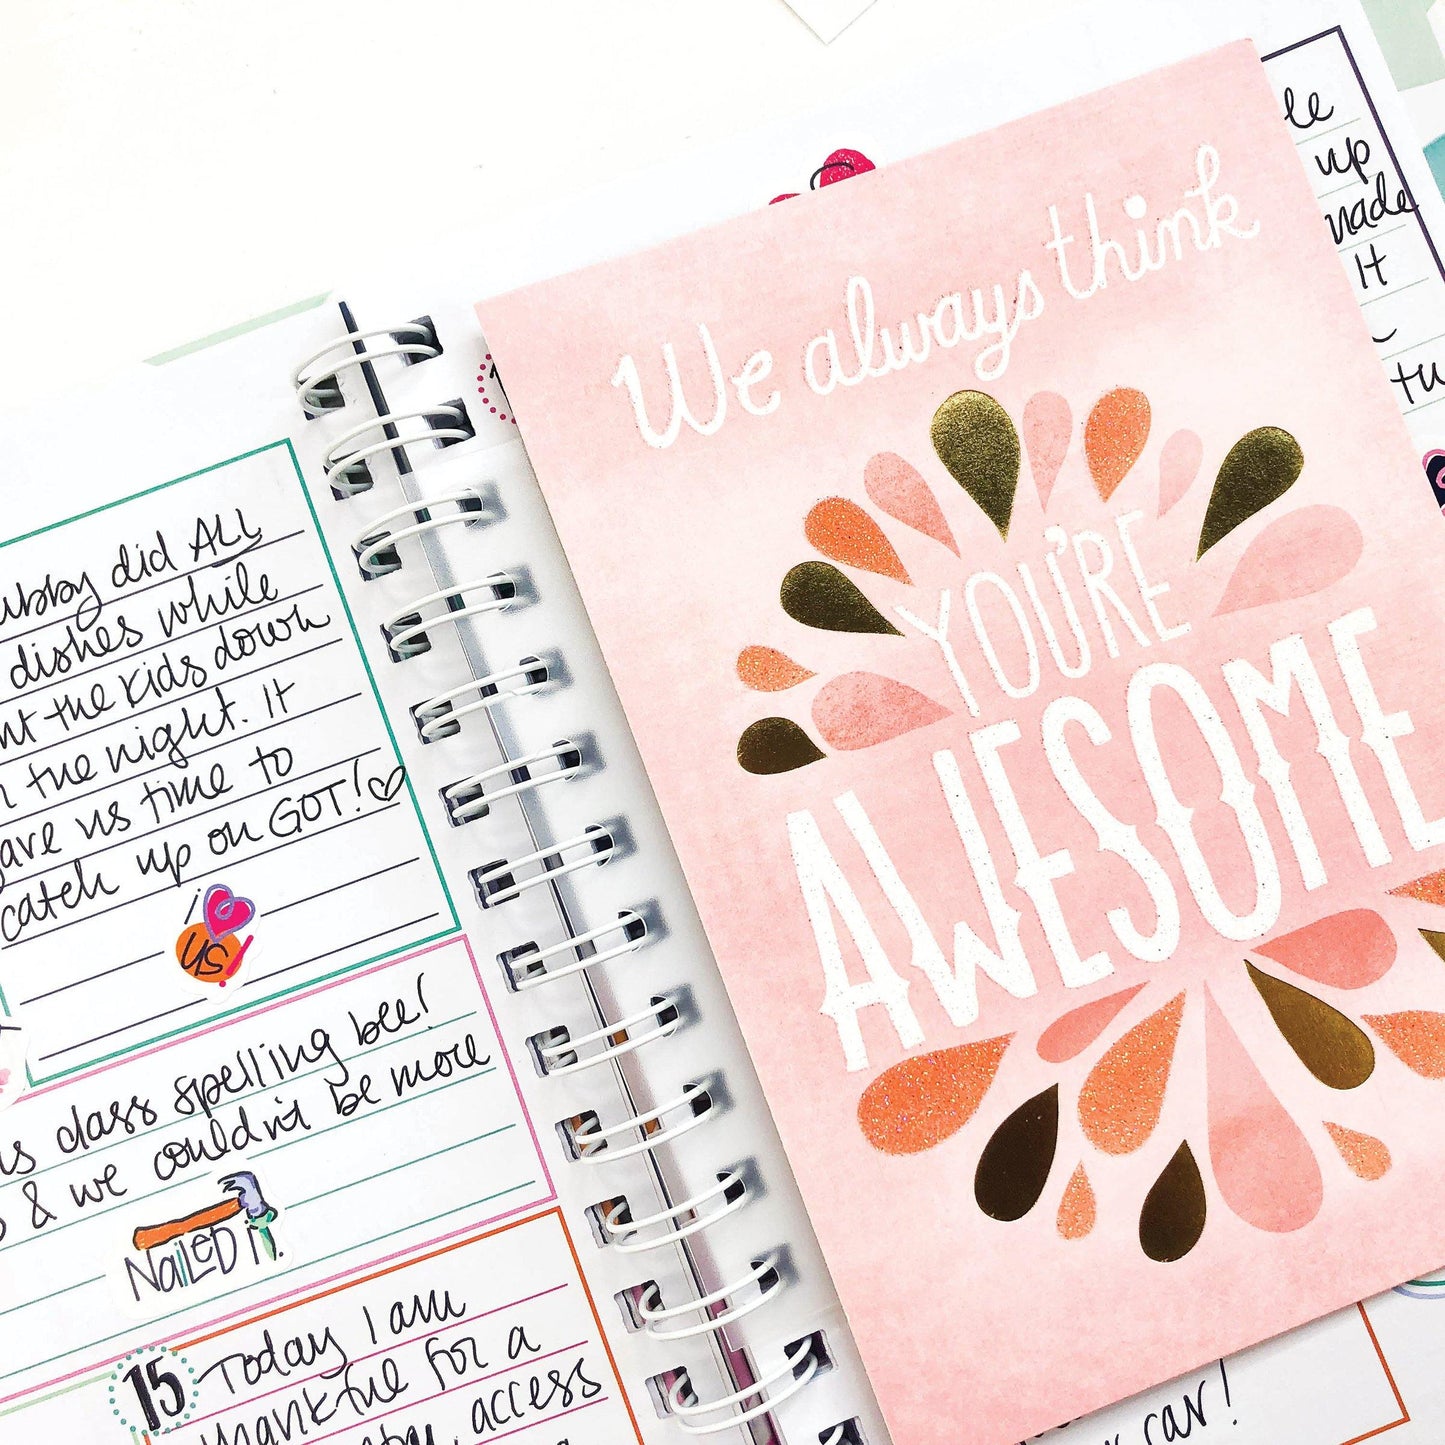 did ALL
dishes while
the kids down
the night. It
us time to
catch up on GOT!
i
us!
class spelling bee!
& we couldn't be more
NaiLeD it.
15
Today I am
thankful for a
access
We always think
YOU'RE
AWESOME
up
It
car!